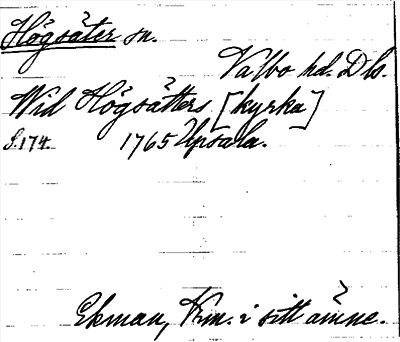 Högsäter sn.
Valbo hd. Dls.
Wid Högsätters [kyrka]
S. 174. 1765 Upsala.
Ekman, Km. i sitt ämne.